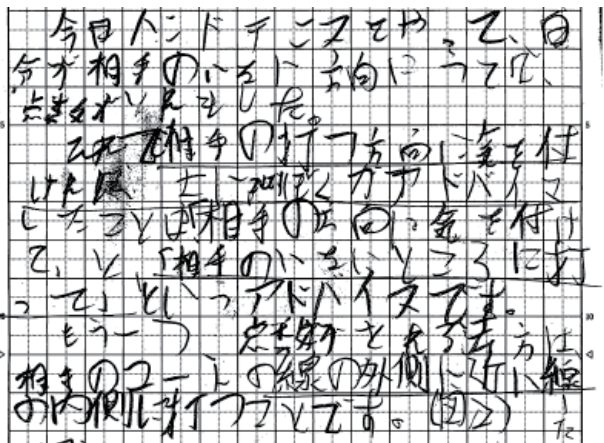 今日ハンドテニスをやって、自
分が相手のいない方向にうって、
点数がとれました。
相手の打つ方向に気を付
け
したことは、相手の方向に気を付け
て、と「相手のいないところに打
って」というアドバイスです。
もう一つ 点数がとれる 方は、
相手のコートの線の外側に近い線
の内側に打つことです。(図2)